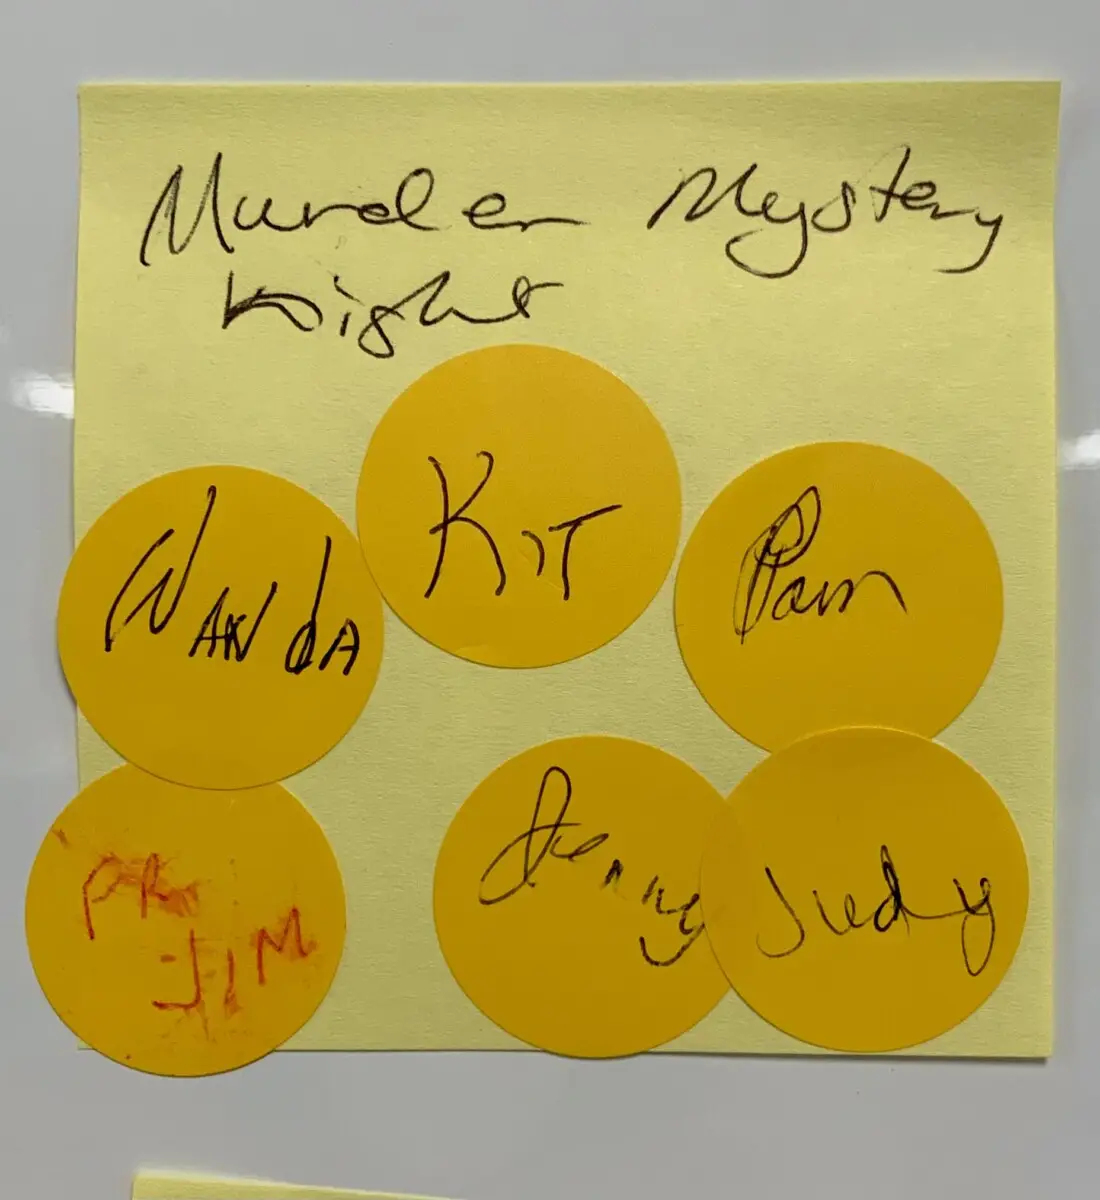 Murder Mystery
Night
KIT
WANdA
Pam
JIM
Judy